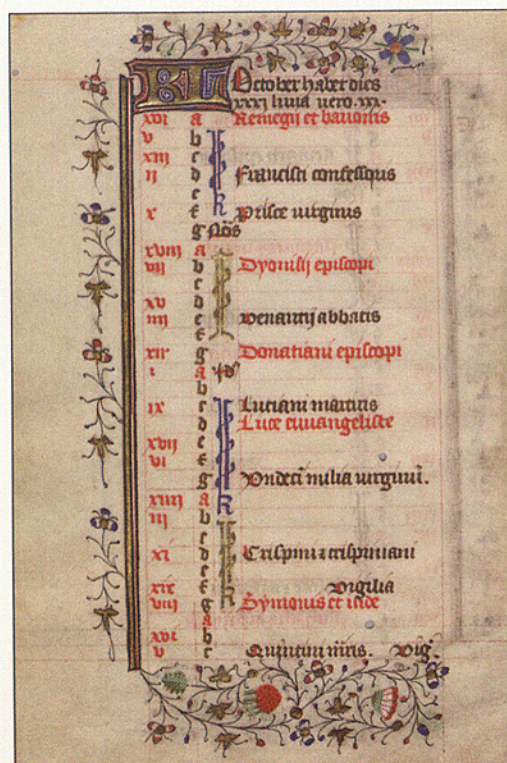 KL October habet dies
xxxi luna vero. xxx.
xvi a Remegii et bavonis
v b
xiii c
ii d Francisci confessoris
e
x f Prisce virginis
g Nōs
xviii a
vii b Dyonisii episcopi
c
xv d
iiii e Venantii abbatis
f
xii g Donatiani episcopi
i a Id
b
ix c Luciani martiris
d Luce ewangeliste
xvii e
vi f
g Undecī milia virginū.
xiiii a
iii b
c
xi d Crispini z crispiniani
e
xix f Vigilia
viii g Symonis et iude
a
xvi b
v c Quintini mr̄is. Vig